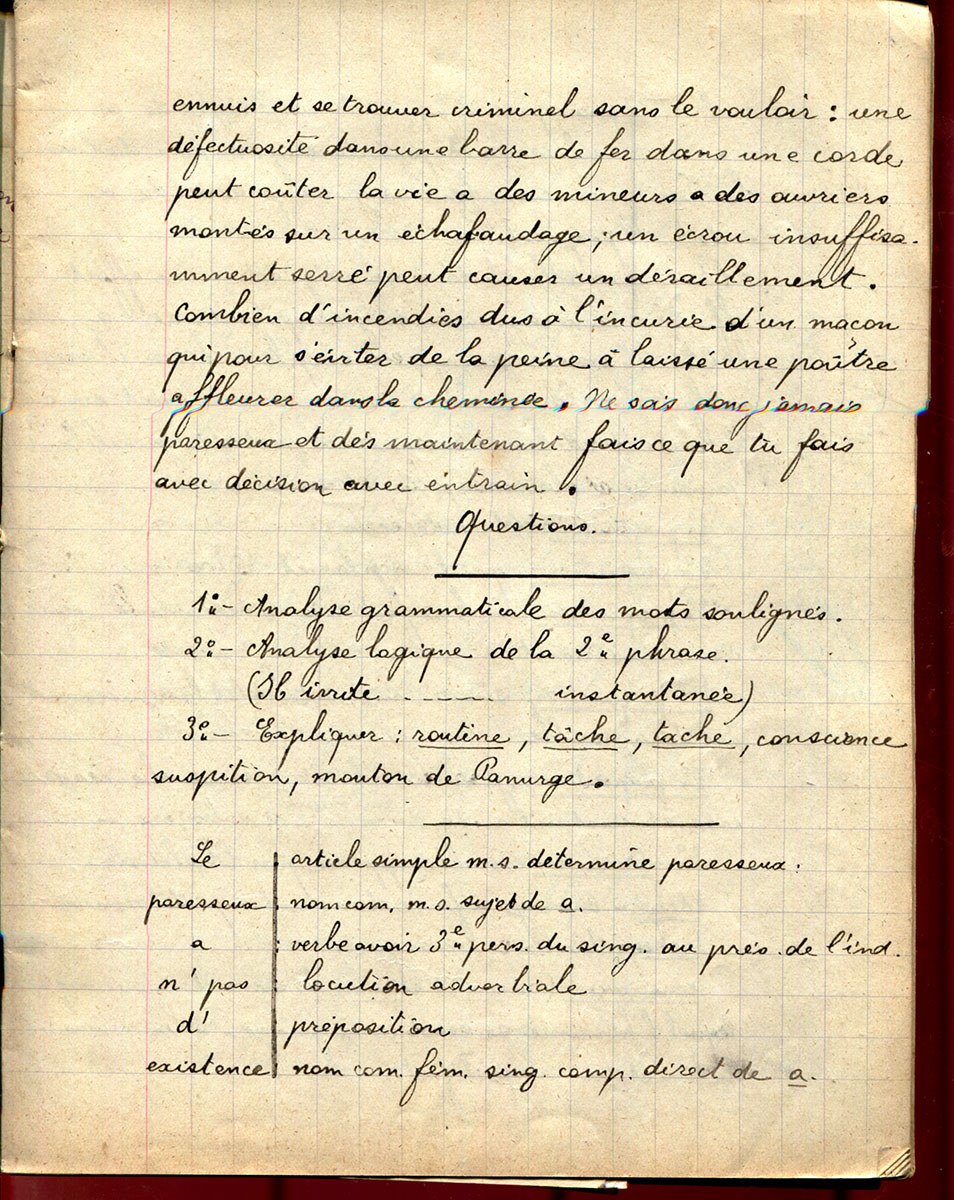 ennuis et se trouver criminel sans le vouloir : une
défectuosité dans une barre de fer dans une corde
peut coûter la vie a des mineurs a des ouvriers
montés sur un échafaudage ; un écrou insuffisa-
mment serré peut causer un déraillement.
Combien d'incendies dus à l'incurie d'un maçon
qui pour s'éviter de la peine à laissé une poûtre
affleurer dans la cheminée. Ne sois donc jamais
paresseux et dés maintenant fais ce que tu fais
avec décision avec entrain.
Questions.
1° - Analyse grammaticale des mots soulignés.
2° - Analyse logique de la 2e phrase.
(Il irrite ----- instantanée)
3° - Expliquer : routine, tâche, tache, conscience
suspition, mouton de Panurge.
Le article simple m.s. détermine paresseux :
paresseux : nom com. m.s. sujet de a.
a : verbe avoir 3e pers. du sing. au prés. de l'ind.
n' pas : locution adverbiale
d' préposition
existence nom com. fém. sing. comp. direct de a.